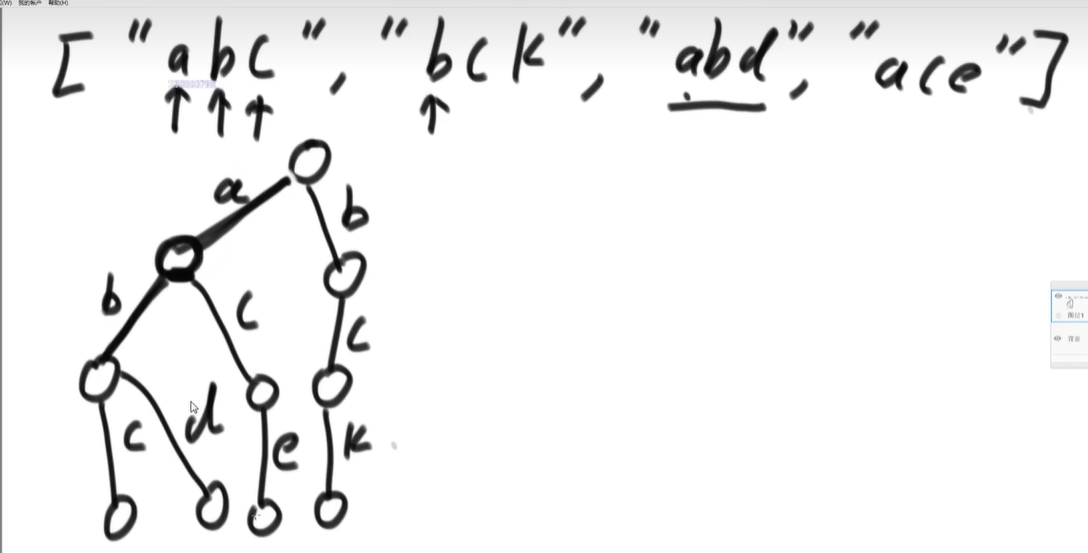 我的帐户 帮助(H)
["abc", "bck", "abd", "ace"]
a
b
b
c
c
c
d
e
k
图层1
背景